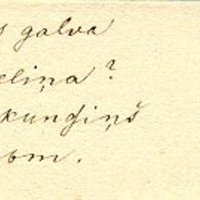 s galva
eliņa?
kungiņš
om.